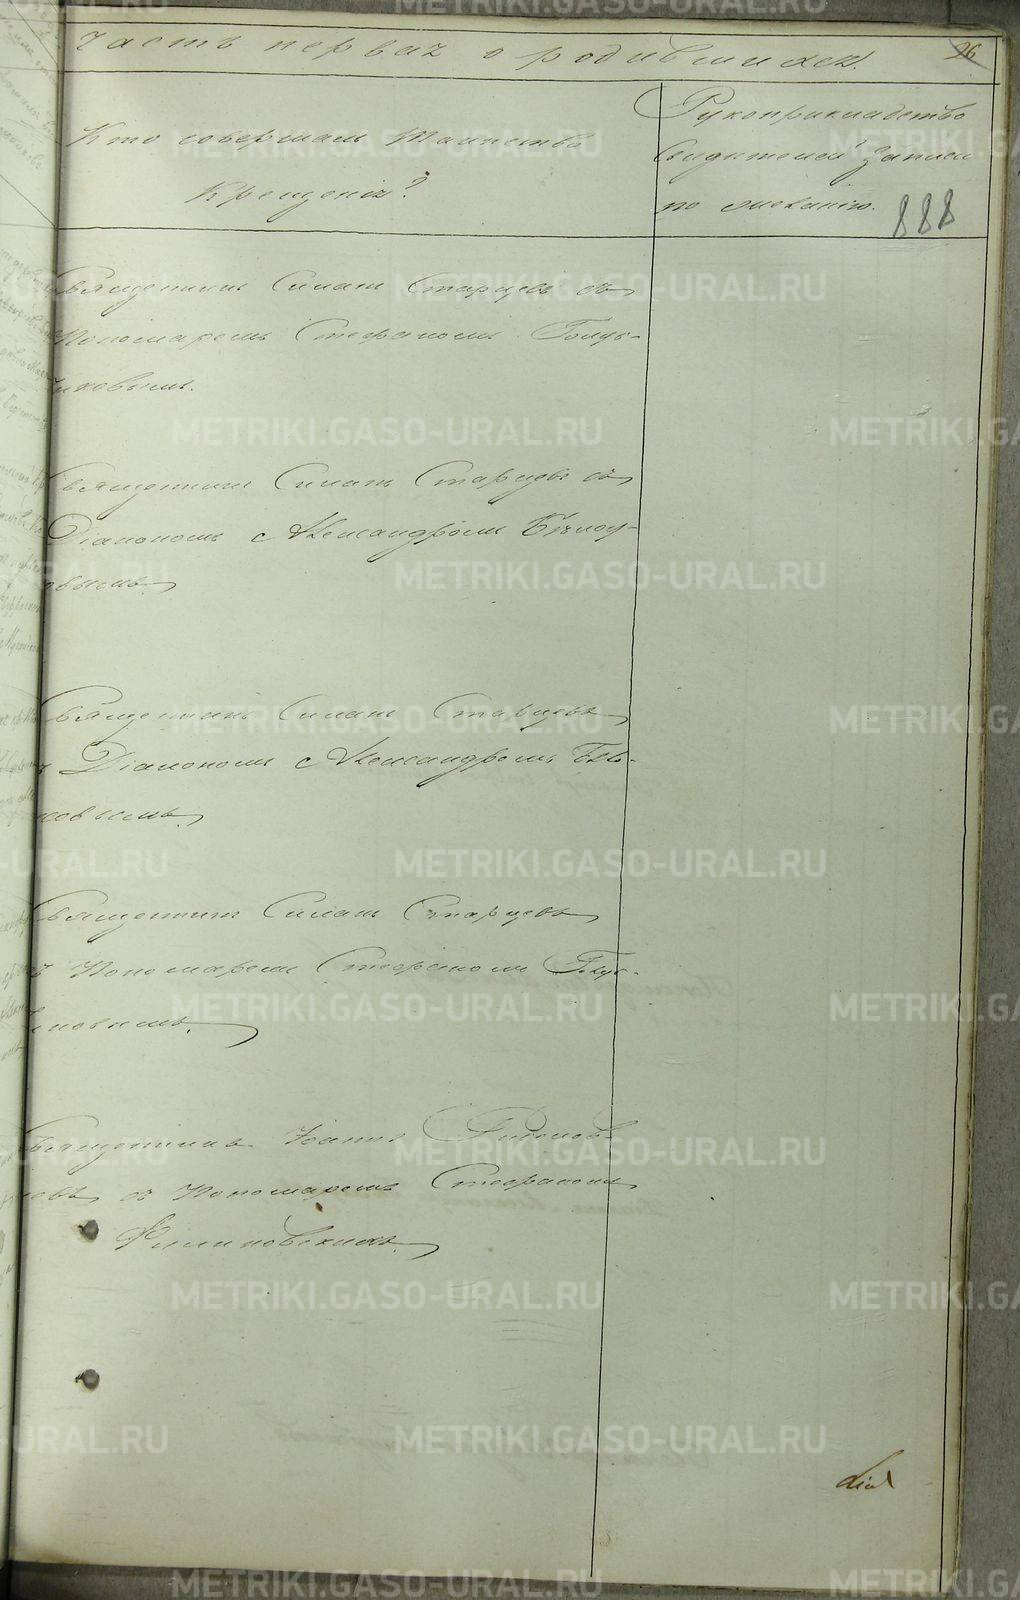 Часть первая о родившихся.
26
Кто совершалъ Таинство
Крещенія?
Рукоприкладство
свидѣтелей записи
по желанію.
888
Священникъ Силанъ Старцевъ съ
Пономаремъ Стефаномъ Голуб-
чиковымъ.
Священникъ Силанъ Старцевъ съ
Діакономъ Александромъ Бѣлоу-
овымъ.
Священникъ Силанъ Старцевъ
съ Діакономъ Александромъ
новымъ.
Священникъ Силанъ Старцевъ
съ Пономаремъ Стефаномъ Голуб-
чиковымъ.
Священникъ Іоаннъ
съ Пономаремъ Стефаномъ
METRIKI.GASO-URAL.RU